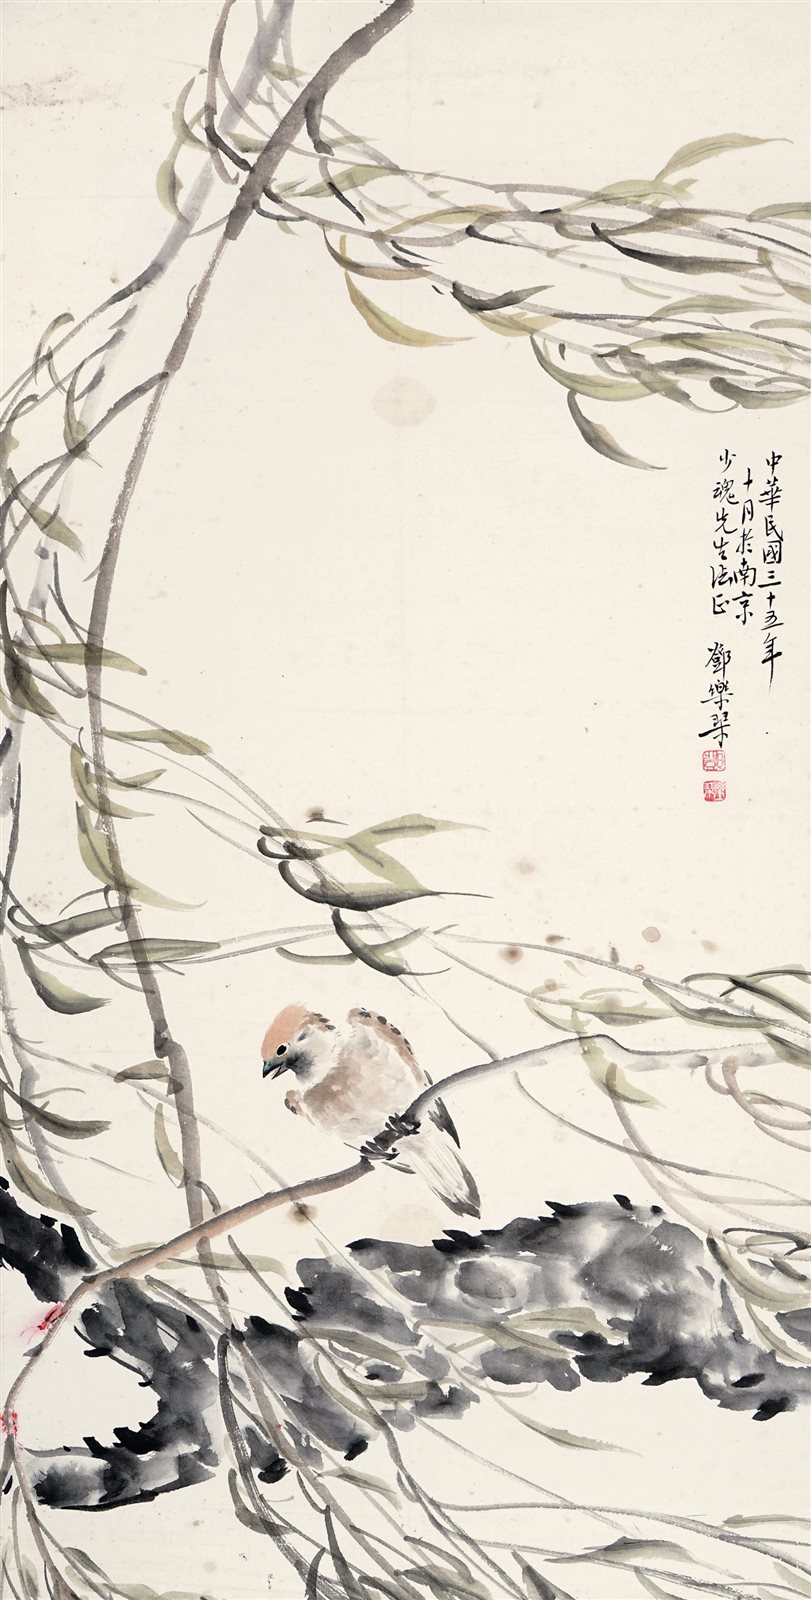 中華民國三十五年
十月於南京
少魂先生法正
鄧樂琹